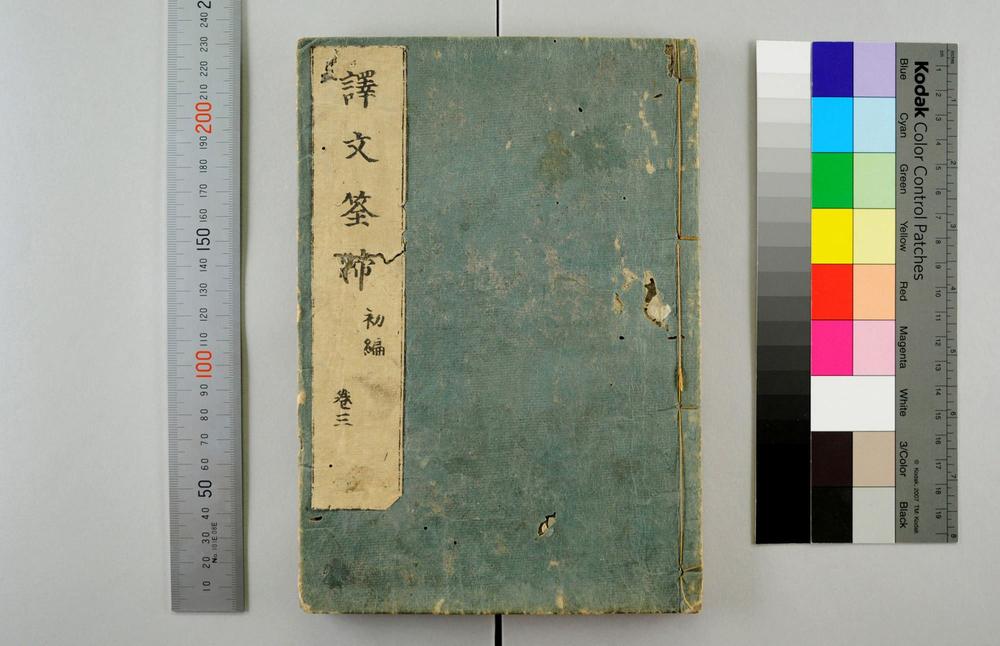 譯文筌蹄
初編
卷三
240
230
220
210
200
190
180
170
160
150
140
130
120
110
100
90
80
70
60
50
40
30
20
10
No.101E 08E
Kodak Color Control Patches
© Kodak, 2007 TM: Kodak
Blue
Cyan
Green
Yellow
Red
Magenta
White
3/Color
Black
1
2
3
4
5
6
7
8
9
10
11
12
13
14
15
16
17
18
19
1
2
3
4
5
6
7
8